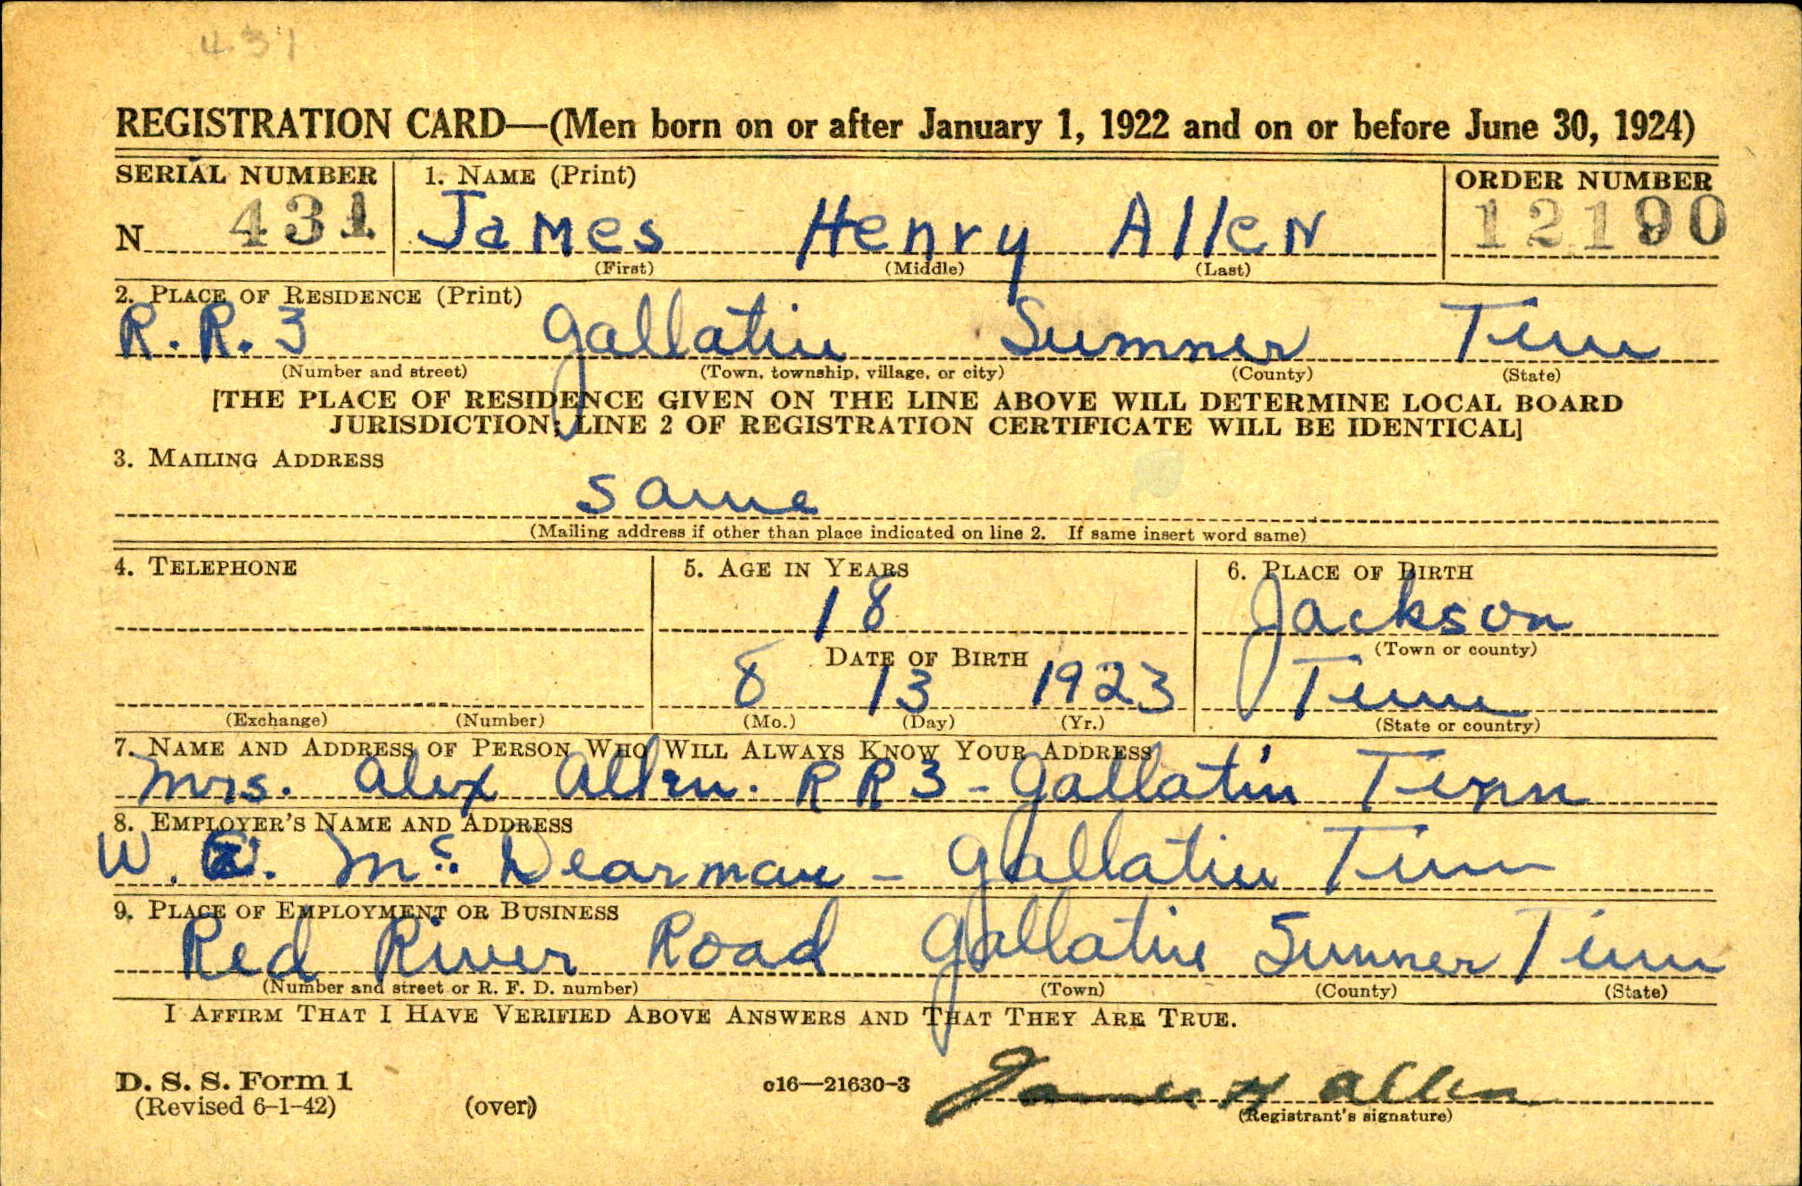 431
REGISTRATION CARD—(Men born on or after January 1, 1922 and on or before June 30, 1924)
SERIAL NUMBER 1. NAME (Print) ORDER NUMBER
N 431 James Henry Allen 12190
(First) (Middle) (Last)
2. PLACE OF RESIDENCE (Print)
R. R. 3 Gallatin Sumner Tenn
(Number and street) (Town, township, village, or city) (County) (State)
[THE PLACE OF RESIDENCE GIVEN ON THE LINE ABOVE WILL DETERMINE LOCAL BOARD
JURISDICTION; LINE 2 OF REGISTRATION CERTIFICATE WILL BE IDENTICAL]
3. MAILING ADDRESS
Same
(Mailing address if other than place indicated on line 2. If same insert word same)
4. TELEPHONE 5. AGE IN YEARS 6. PLACE OF BIRTH
18 Jackson
DATE OF BIRTH (Town or county)
8 13 1923 Tenn
(Exchange) (Number) (Mo.) (Day) (Yr.) (State or country)
7. NAME AND ADDRESS OF PERSON WHO WILL ALWAYS KNOW YOUR ADDRESS
Mrs. Alex Allen. RR3 - Gallatin Tenn
8. EMPLOYER'S NAME AND ADDRESS
W. Mc Dearman - Gallatin Tenn
9. PLACE OF EMPLOYMENT OR BUSINESS
Red River Road Gallatin Sumner Tenn
(Number and street or R. F. D. number) (Town) (County) (State)
I AFFIRM THAT I HAVE VERIFIED ABOVE ANSWERS AND THAT THEY ARE TRUE.
D. S. S. Form 1 c16—21630-3 James H Allen
(Revised 6-1-42) (over) (Registrant's signature)